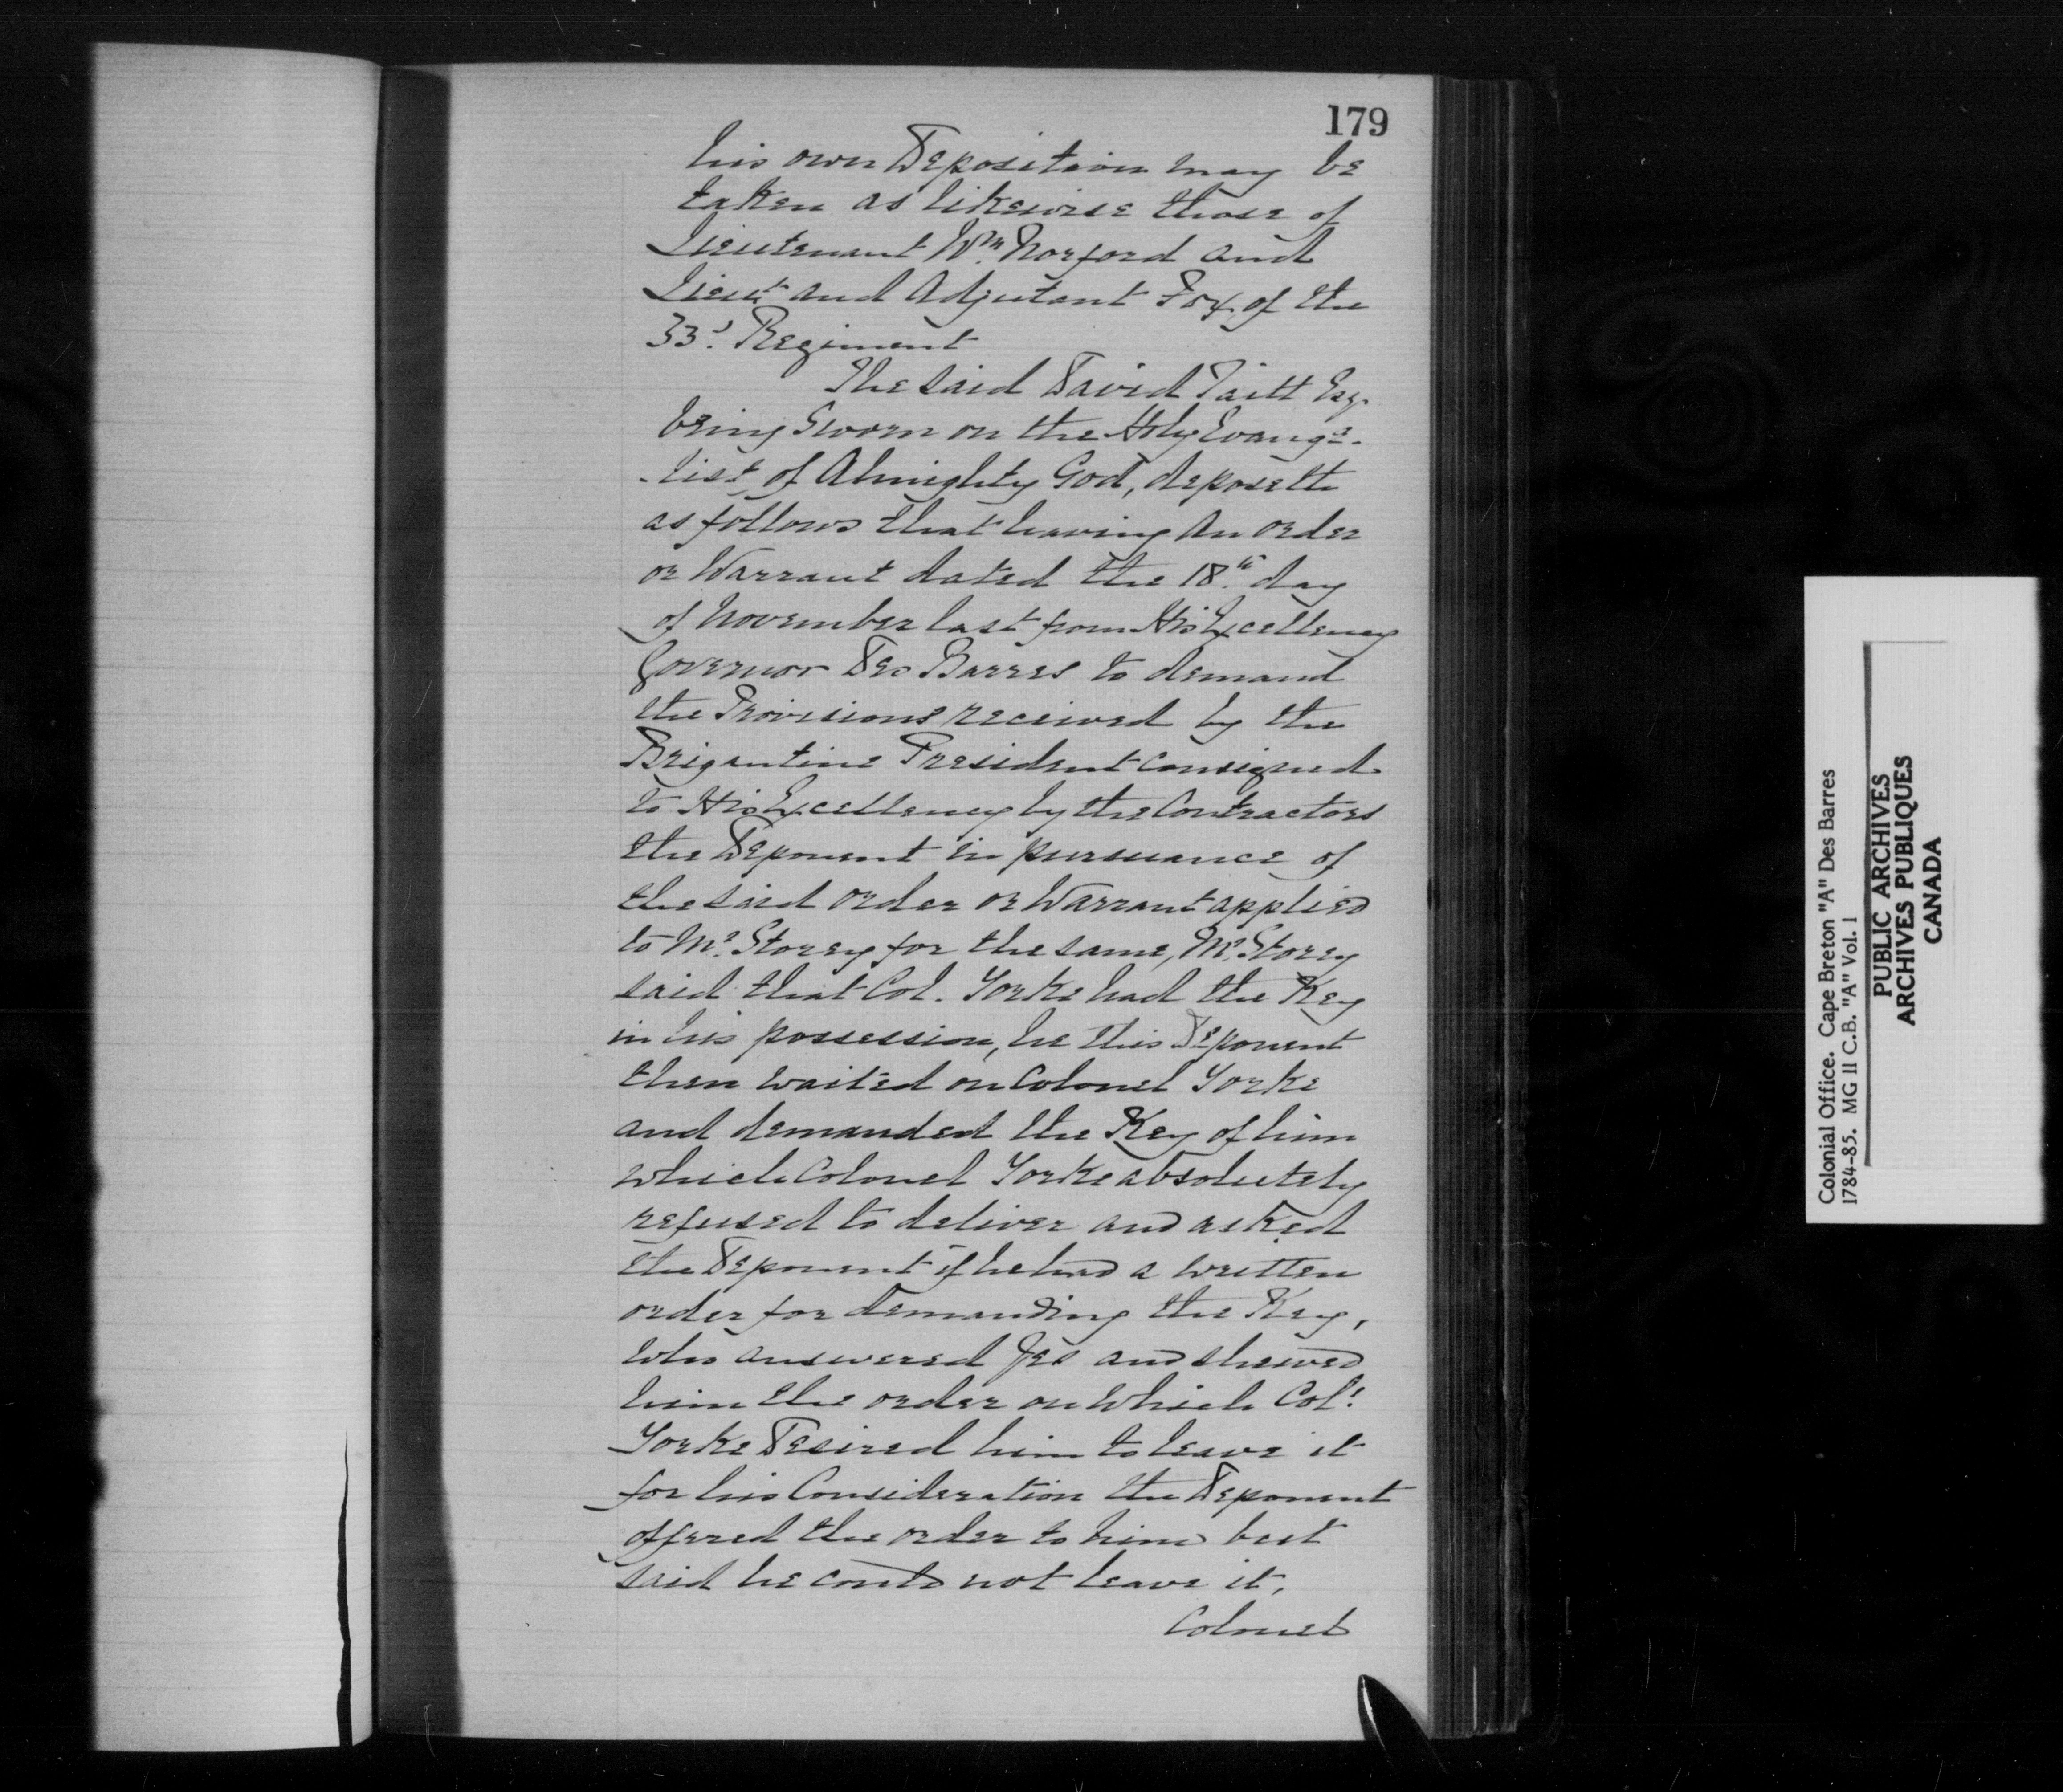 179
his own Deposition may be
taken as likewise those of
Lieutenant Wm. Norford and
Lieut. and Adjutant Fox of the
33d. Regiment
The said David Taitt Esq.
being Sworn on the Holy Evange-
-list of Almighty God, deposeth
as follows that having an order
or Warrant dated the 18th. day
of November last from His Excellency
Governor Des Barres to demand
the Provisions received by the
Brigantine President consigned
to His Excellency by the Contractors
the Deponent in pursuance of
the said order or Warrant applied
to Mr. Storey for the same, Mr. Storey
said that Col. Yorke had the Key
in his possession, he this Deponent
then waited on Colonel Yorke
and demanded the Key of him
which Colonel Yorke absolutely
refused to deliver and asked
the Deponent if he had a written
order for demanding the Key,
who answered Yes and shewed
him the order on which Coll.
Yorke Desired him to leave it
for his Consideration the Deponent
offered the order to him but
said he could not leave it,
Colonel
Colonial Office. Cape Breton "A" Des Barres
1784-85. MG 11 C.B. "A" Vol. 1
PUBLIC ARCHIVES
ARCHIVES PUBLIQUES
CANADA